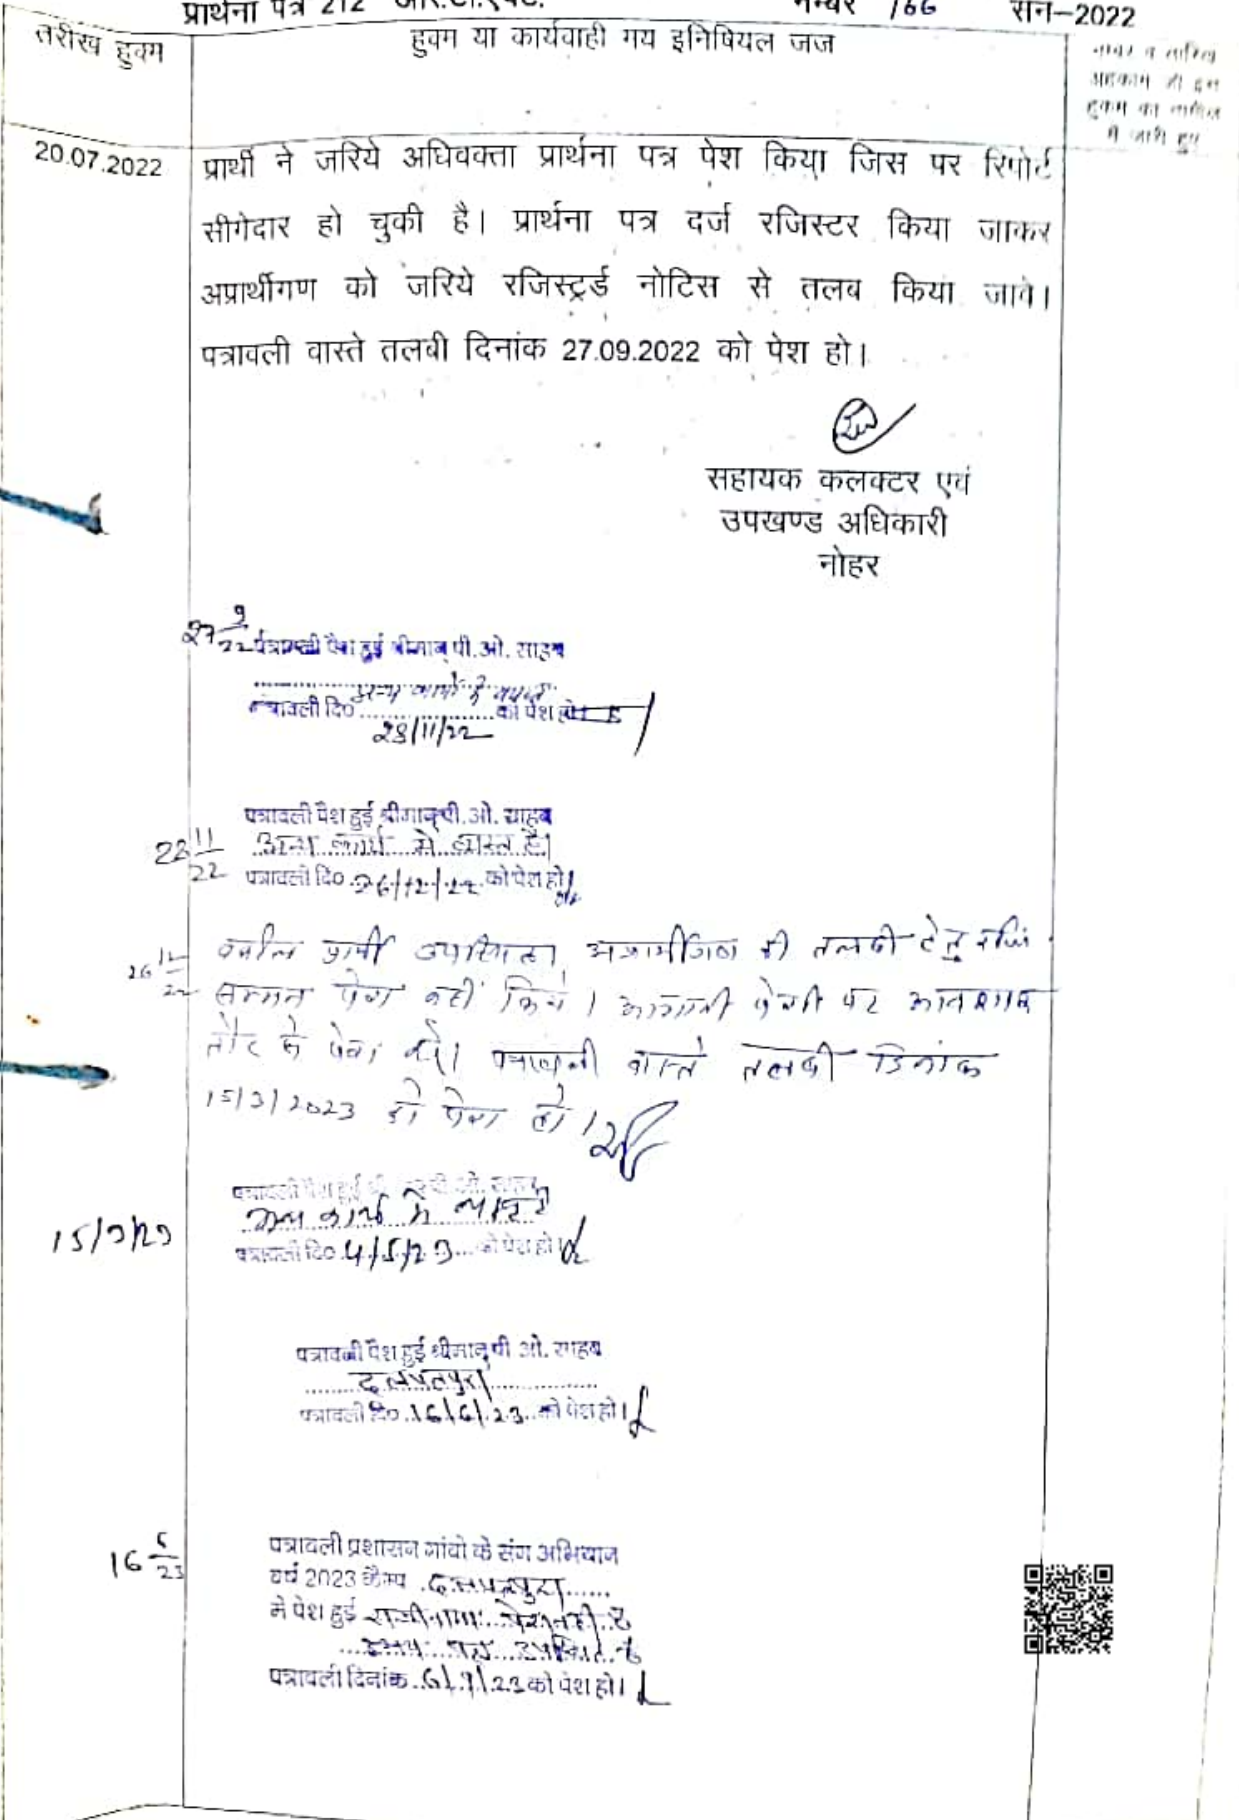 प्रार्थना पत्र 212 आर.टी.एक्ट. नम्बर 166 सन–2022
तरीख हुक्म
हुक्म या कार्यवाही मय इनिषियल जज
नम्बर व तारिख
अहकाम जो इस
हुकम का तामील
में जारी हुए
20.07.2022
प्रार्थी ने जरिये अधिवक्ता प्रार्थना पत्र पेश किया जिस पर रिपोर्ट
सीगेदार हो चुकी है। प्रार्थना पत्र दर्ज रजिस्टर किया जाकर
अप्रार्थीगण को जरिये रजिस्ट्रर्ड नोटिस से तलब किया जावे।
पत्रावली वास्ते तलबी दिनांक 27.09.2022 को पेश हो।
सहायक कलक्टर एवं
उपखण्ड अधिकारी
नोहर
27 9/22 पत्रावली पेश हुई श्रीमान् पी.ओ. साहब
अन्य कार्यो में व्यस्त
पत्रावली दि० 28/11/22 को पेश हो
पत्रावली पेश हुई श्रीमान् पी.ओ. साहब
28 11/22 अन्य कार्य मे व्यस्त है।
पत्रावली दि० 26/12/22 को पेश हो
26 12/22 वकील प्रार्थी उपस्थित। अप्रार्थीगण की तलबी हेतु रजि.
सम्मन पेश नहीं किये। आगामी पेशी पर आवश्यक
तौर से पेश करे। पत्रावली वास्ते तलबी दिनांक
15/3/2023 को पेश हो।
पत्रावली पेश हुई श्री पी.ओ. साहब
15/3/23 अन्य कार्य मे व्यस्त
पत्रावली दि० 4/5/23 को पेश हो।
पत्रावली पेश हुई श्रीमान् पी ओ. साहब
दलपतपुरा
पत्रावली दि० 16/6/23 को पेश हो।
16 6/23
पत्रावली प्रशासन गांवो के संग अभियान
वर्ष 2023 कैम्प दलपतपुरा
मे पेश हुई राजीनामा पेश नही है
उभय पक्ष उपस्थित है
पत्रावली दिनांक 6/9/23 को पेश हो।